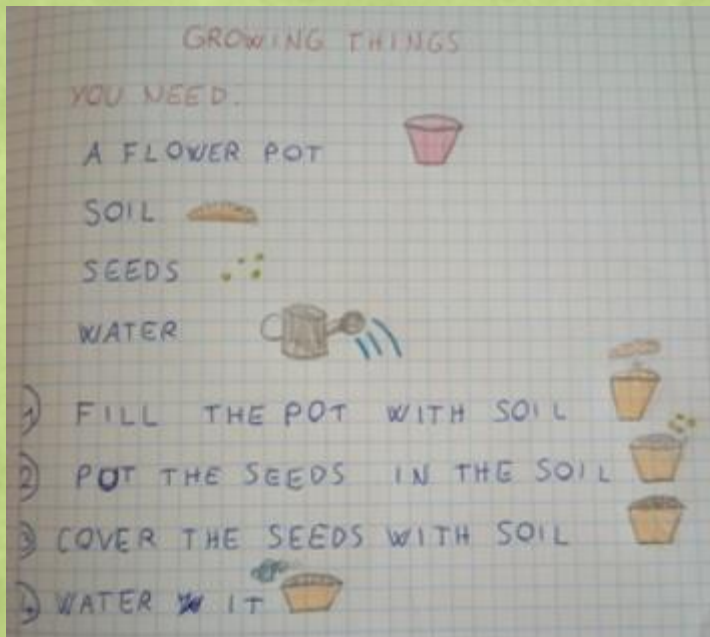 GROWING THINGS
YOU NEED:
A FLOWER POT
SOIL
SEEDS
WATER
1) FILL THE POT WITH SOIL
2) POT THE SEEDS IN THE SOIL
3) COVER THE SEEDS WITH SOIL
4) WATER IT